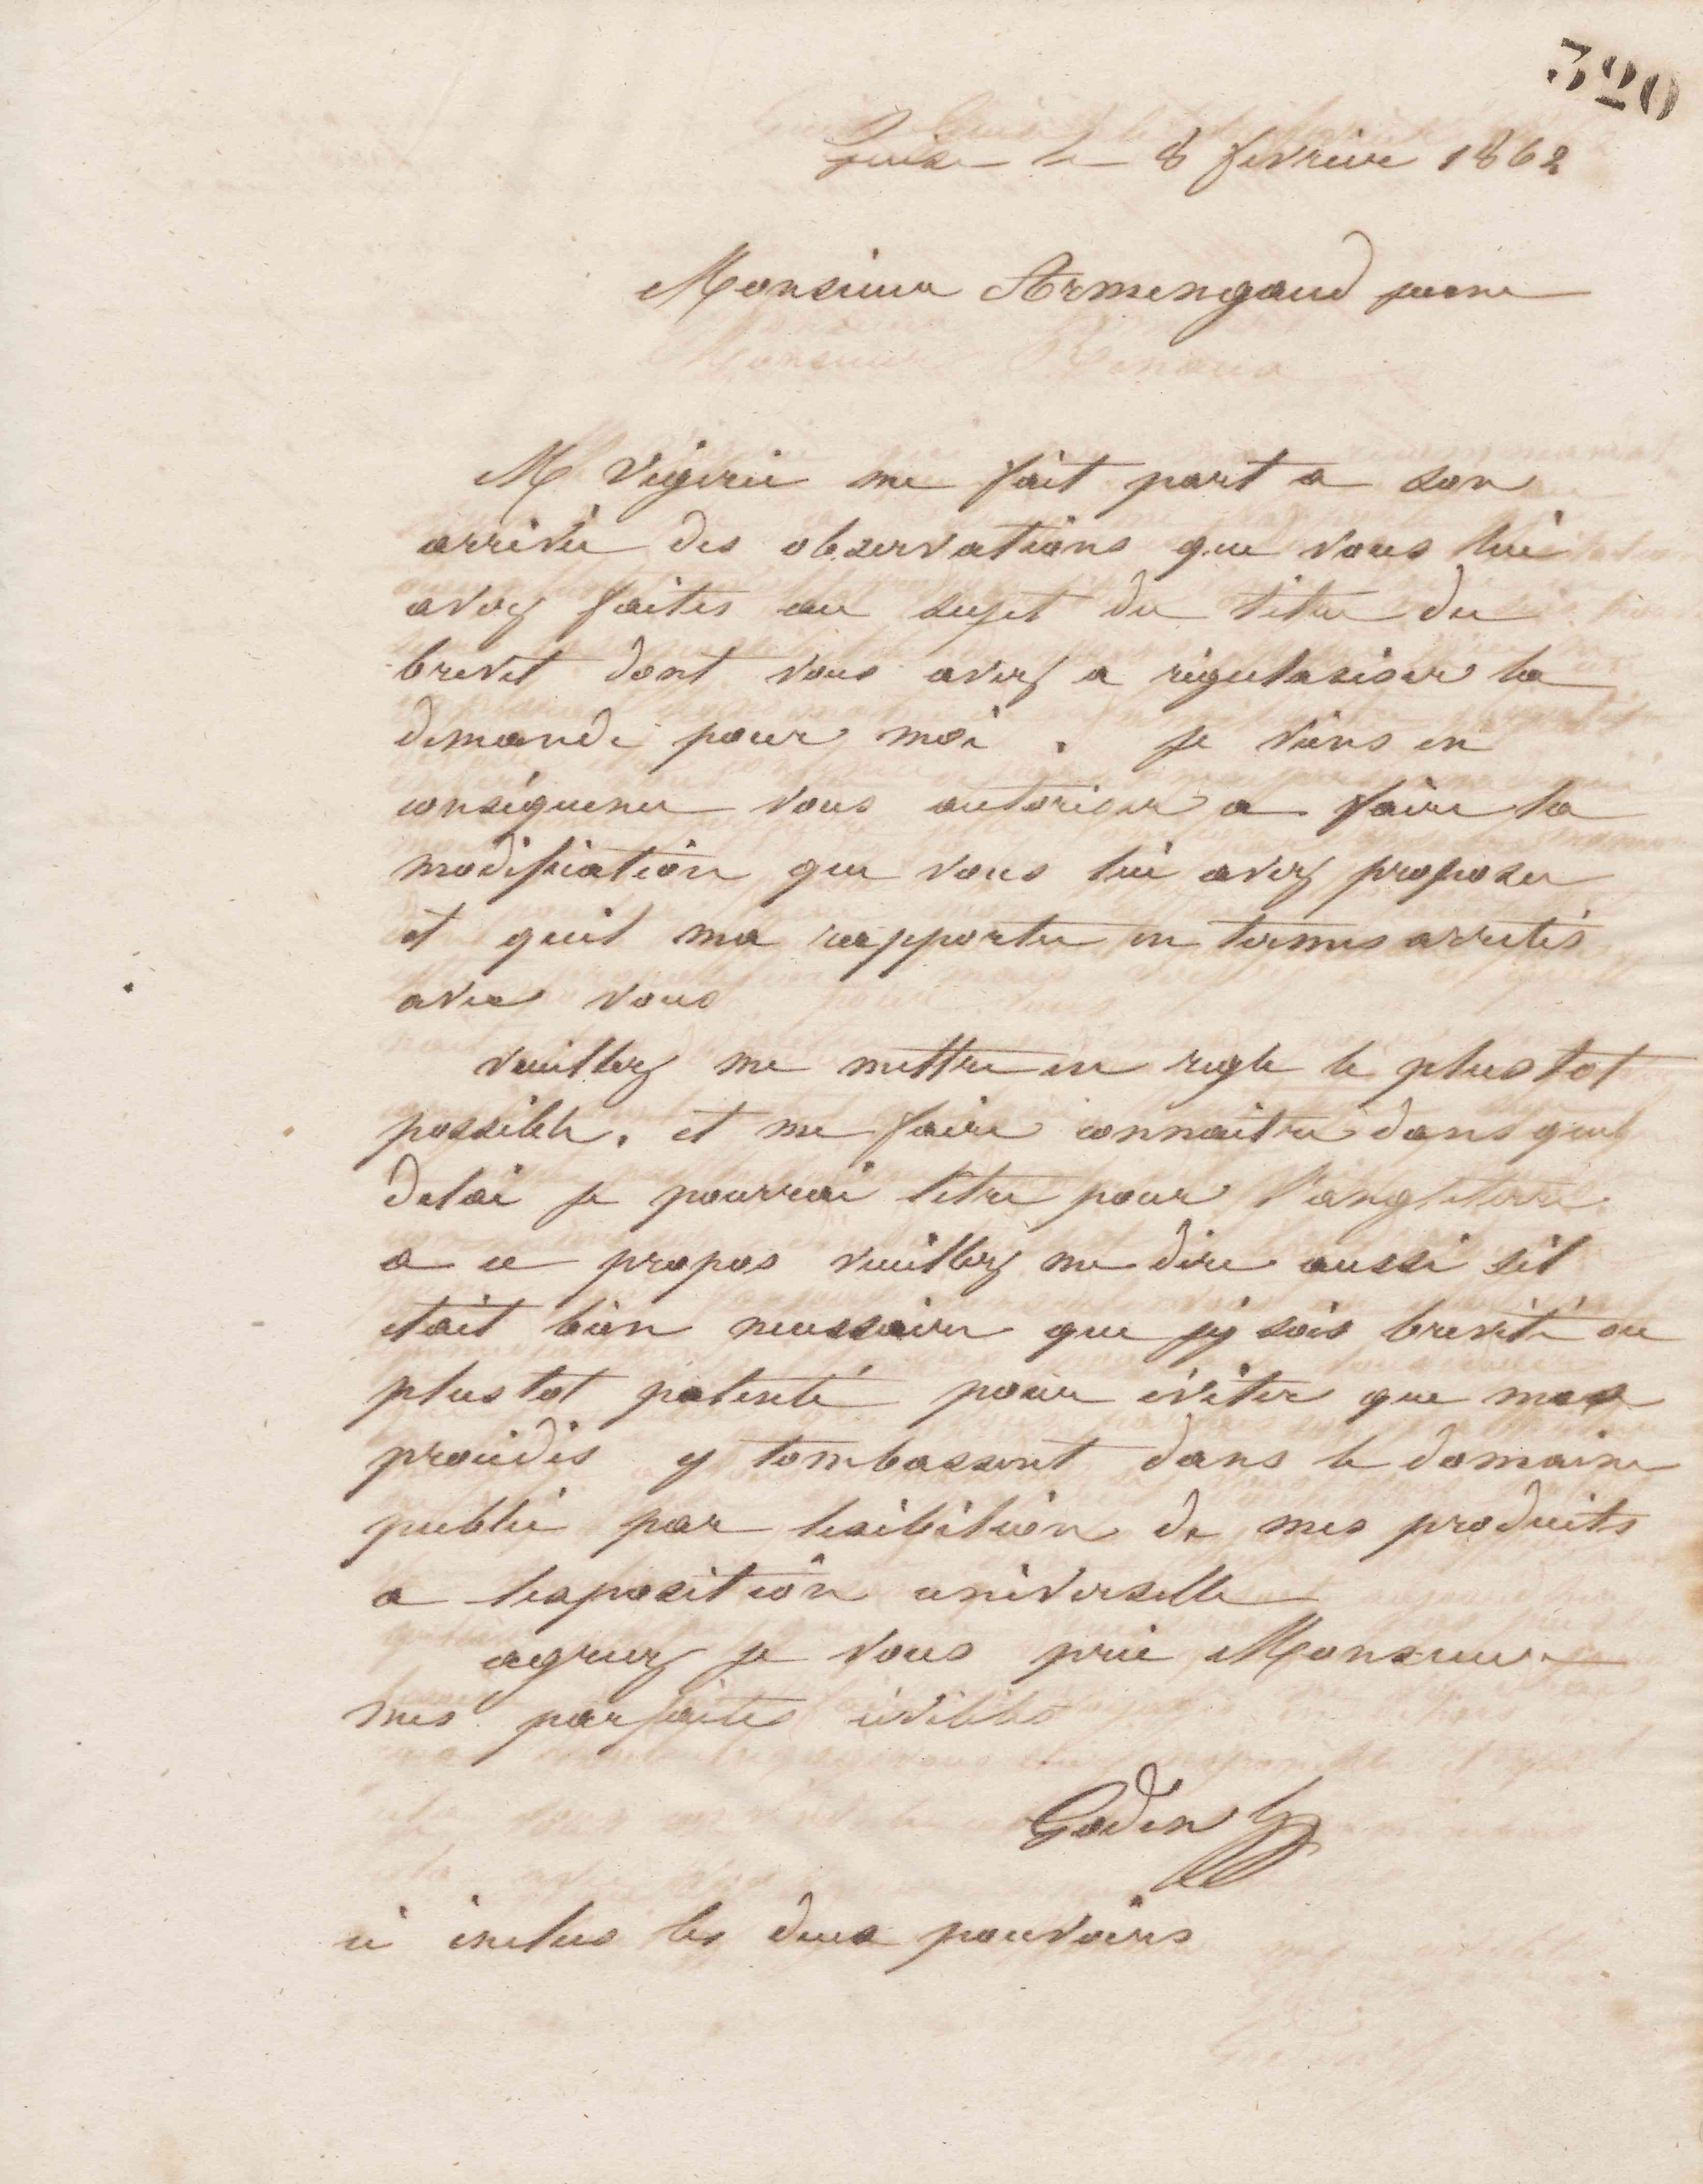 320
Guise le 8 fevrier 1862
Monsieur Armengaud jeune
M Vigerie me fait part a son
arrivée des observations que vous lui
avez faites au sujet du titre du
brevet dont vous avez a régulariser la
demande pour moi. je viens en
conséquence vous autoriser a faire la
modification que vous lui avez proposer
et quil ma rapportée en termes arretés
avec vous
veuillez me mettre en regle le plus tot
possible. et me faire connaitre dans quel
delai je pourrai letre pour l'angleterre
a ce propos veuillez me dire aussi sil
etait bien necessaire que jy sois breveté ou
plus tot patenté pour éviter que mes
procédés y tombassent dans le domaine
public par lexibition de mes produits
a lexposition universelle
agreez je vous prie Monsieur
mes parfaites civilités
Godin
ci inclus les deux pouvoirs